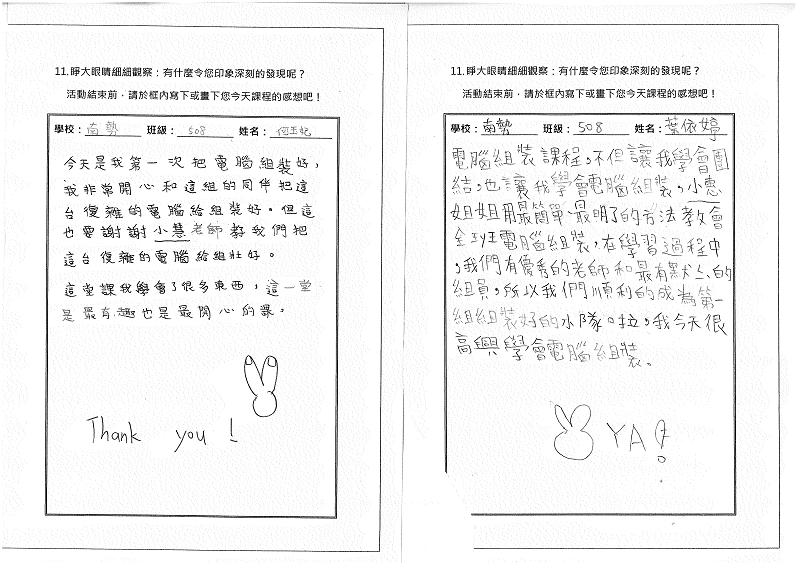 11.睜大眼睛細細觀察：有什麼令您印象深刻的發現呢？
活動結束前，請於框內寫下或畫下您今天課程的感想吧！
學校：南勢 班級：508 姓名：
今天是我第一次把電腦組裝好，
我非常開心和這組的同伴把這
台復雜的電腦給組裝好。但這
也要謝謝小慧老師教我們把
這台復雜的電腦給組壯好。
這堂課我學會了很多東西，這一堂
是最有趣也是最開心的課。
Thank you!
11.睜大眼睛細細觀察：有什麼令您印象深刻的發現呢？
活動結束前，請於框內寫下或畫下您今天課程的感想吧！
學校：南勢 班級：508 姓名：葉依婷
電腦組裝課程，不但讓我學會團
結，也讓我學會電腦組裝，小惠
姐姐用最簡單、最明了的方法教會
全班電腦組裝，在學習過程中
，我們有優秀的老師和最有默入的
組員，所以我們順利的成為第一
組組裝好的小隊。拉，我今天很
高興學會電腦組裝。
YA!